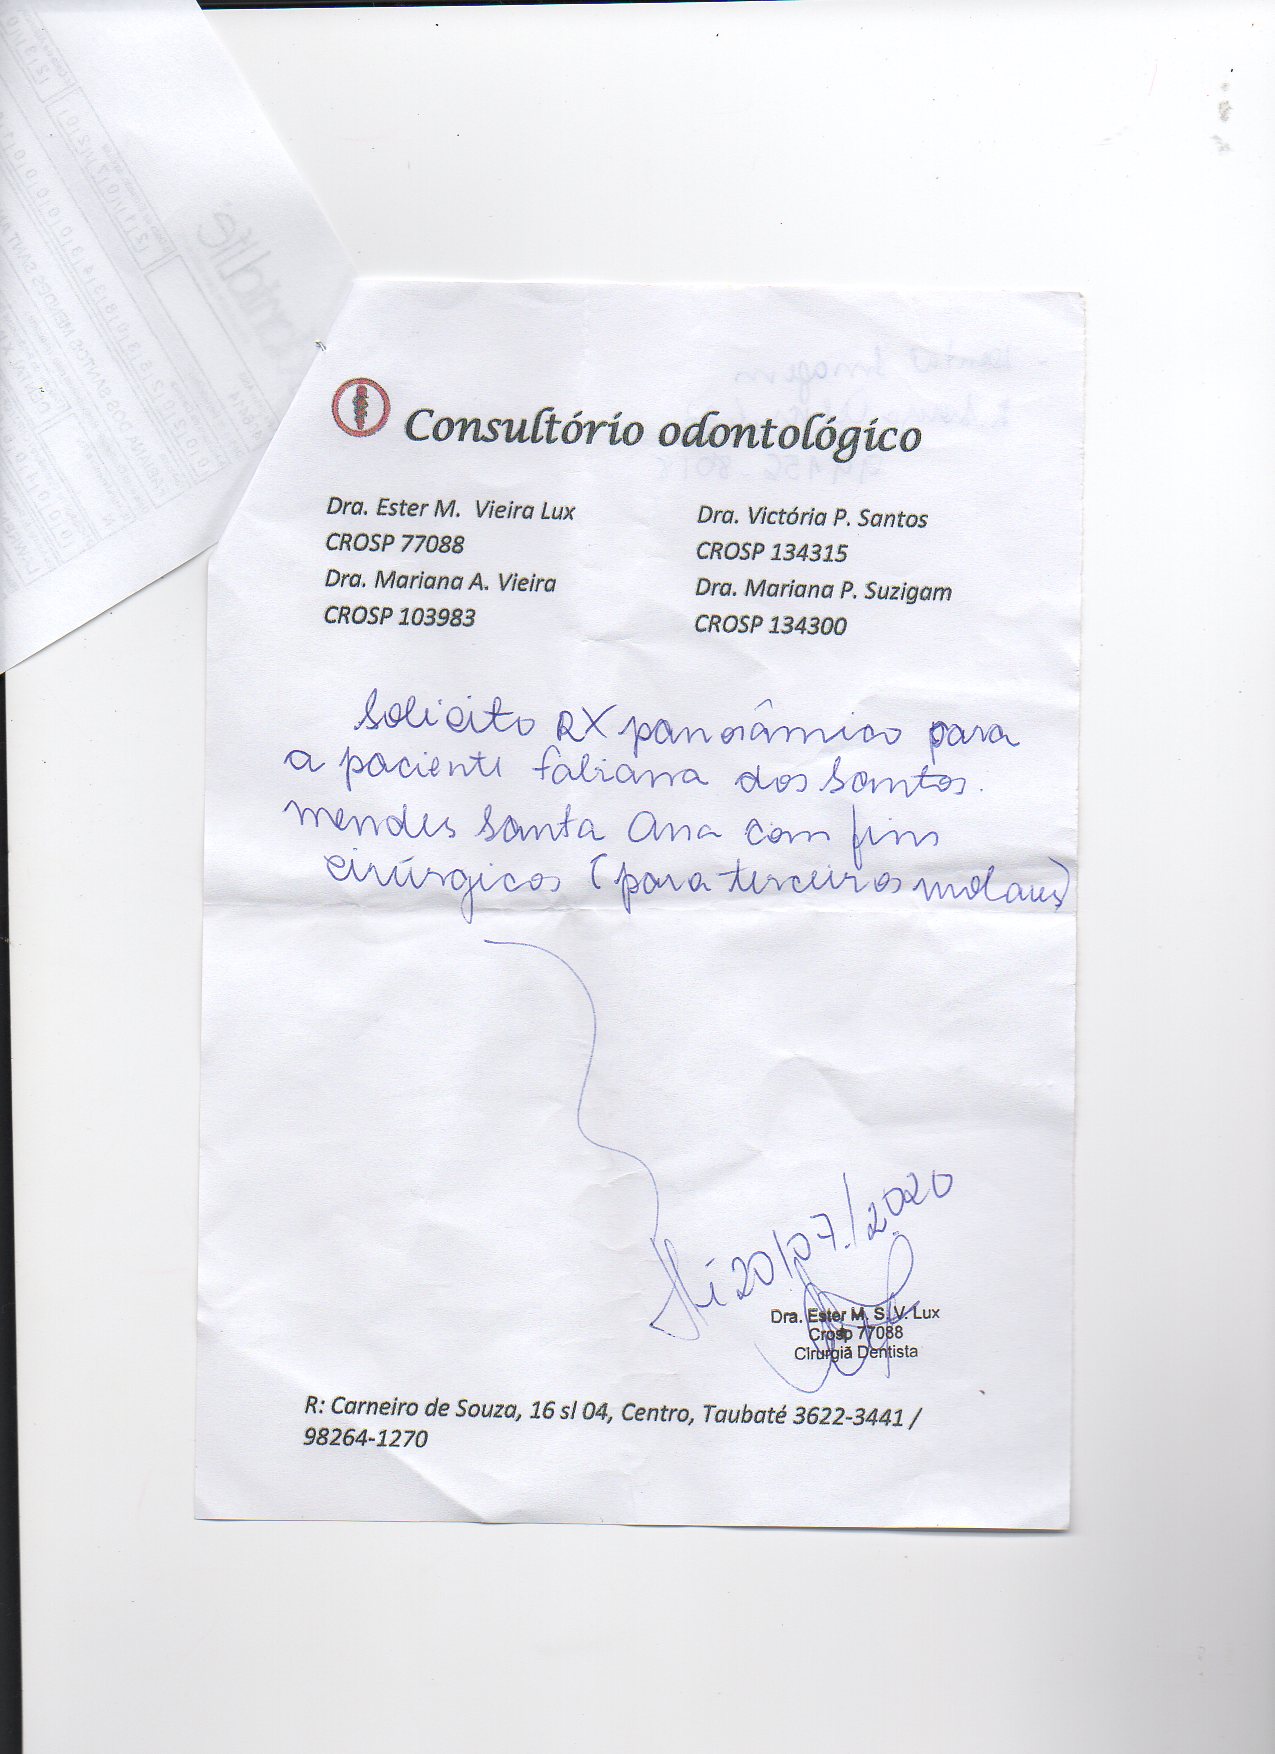 Consultório odontológico
Dra. Ester M. Vieira Lux
CROSP 77088
Dra. Mariana A. Vieira
CROSP 103983
Dra. Victória P. Santos
CROSP 134315
Dra. Mariana P. Suzigam
CROSP 134300
Solicito RX panorâmico para
a paciente Fabiana dos Santos.
mendes Santa Ana com fins
cirúrgicos (para terceiros molares)
20/07/2020
Dra. Ester M. S. V. Lux
Crosp 77088
Cirurgiã Dentista
R: Carneiro de Souza, 16 sl 04, Centro, Taubaté 3622-3441 /
98264-1270